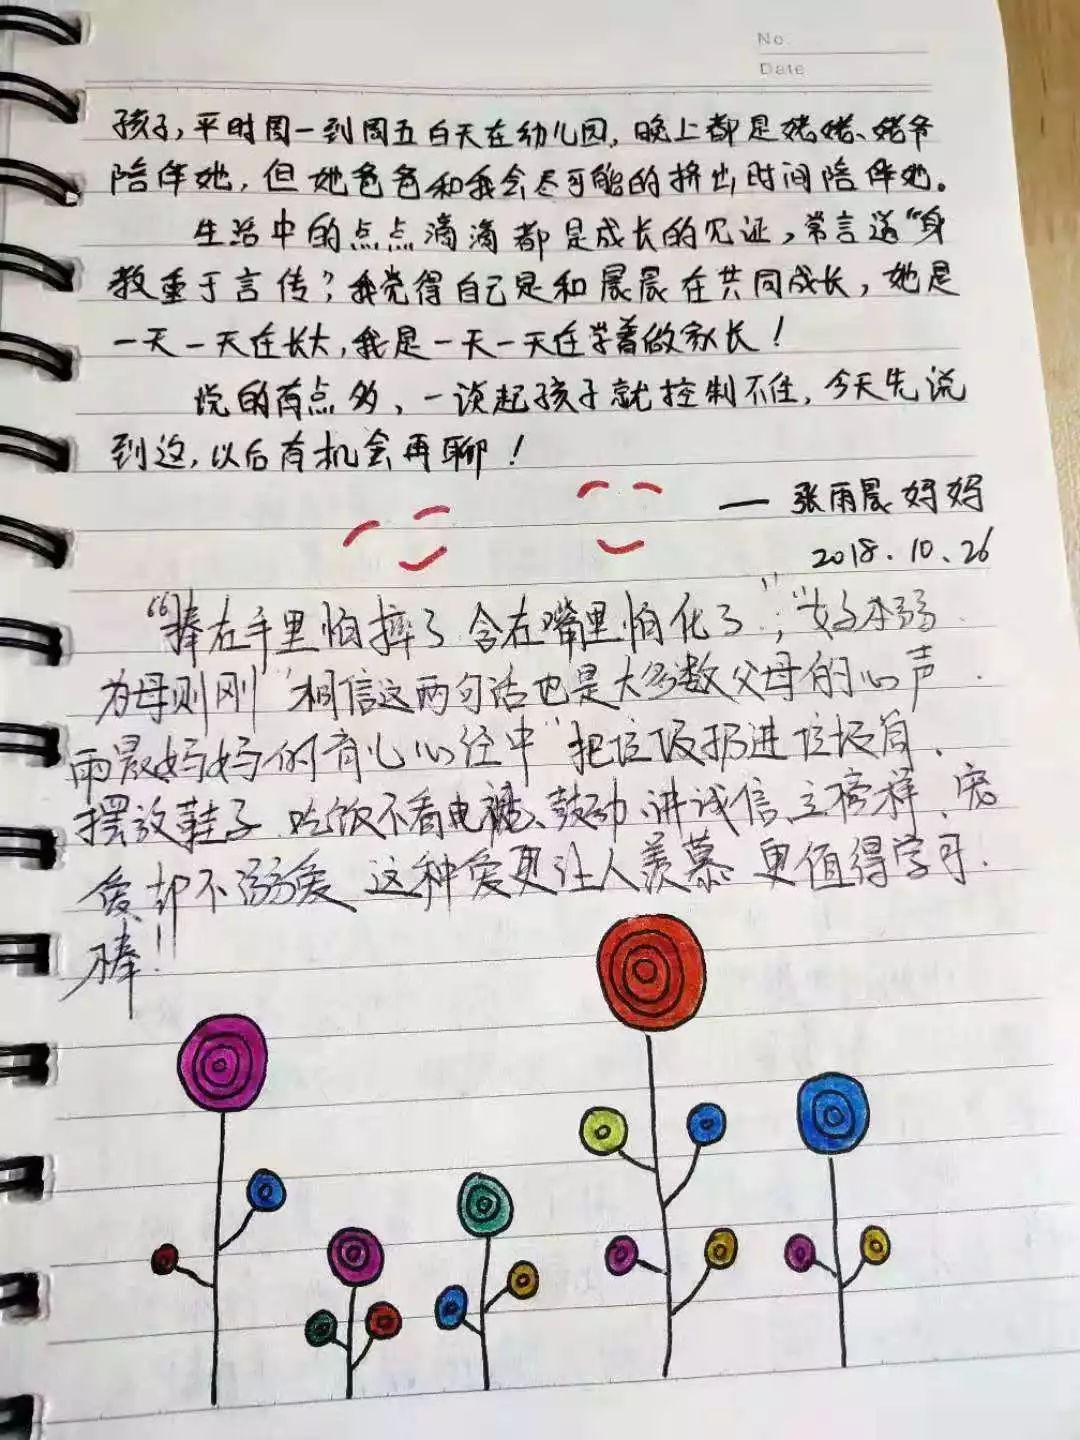 No.
Date
孩子，平时周一到周五白天在幼儿园，晚上都是姥姥、姥爷
陪伴她，但她爸爸和我会尽可能的挤出时间陪伴她。
生活中的点点滴滴都是成长的见证，常言道“身
教重于言传”？我觉得自己是和晨晨在共同成长，她是
一天一天在长大，我是一天一天在学着做家长！
说的有点多，一谈起孩子就控制不住，今天先说
到这，以后有机会再聊！
— 张雨晨妈妈
2018.10.26
“捧在手里怕摔了 含在嘴里怕化了”，“女子本弱
为母则刚”相信这两句话也是大多数父母的心声.
雨晨妈妈的育儿心经中“把垃圾扔进垃圾筒、
摆放鞋子、吃饭不看电视、鼓励、讲诚信、立榜样、宠
爱却不溺爱 这种爱更让人羡慕 更值得学习.
棒!!